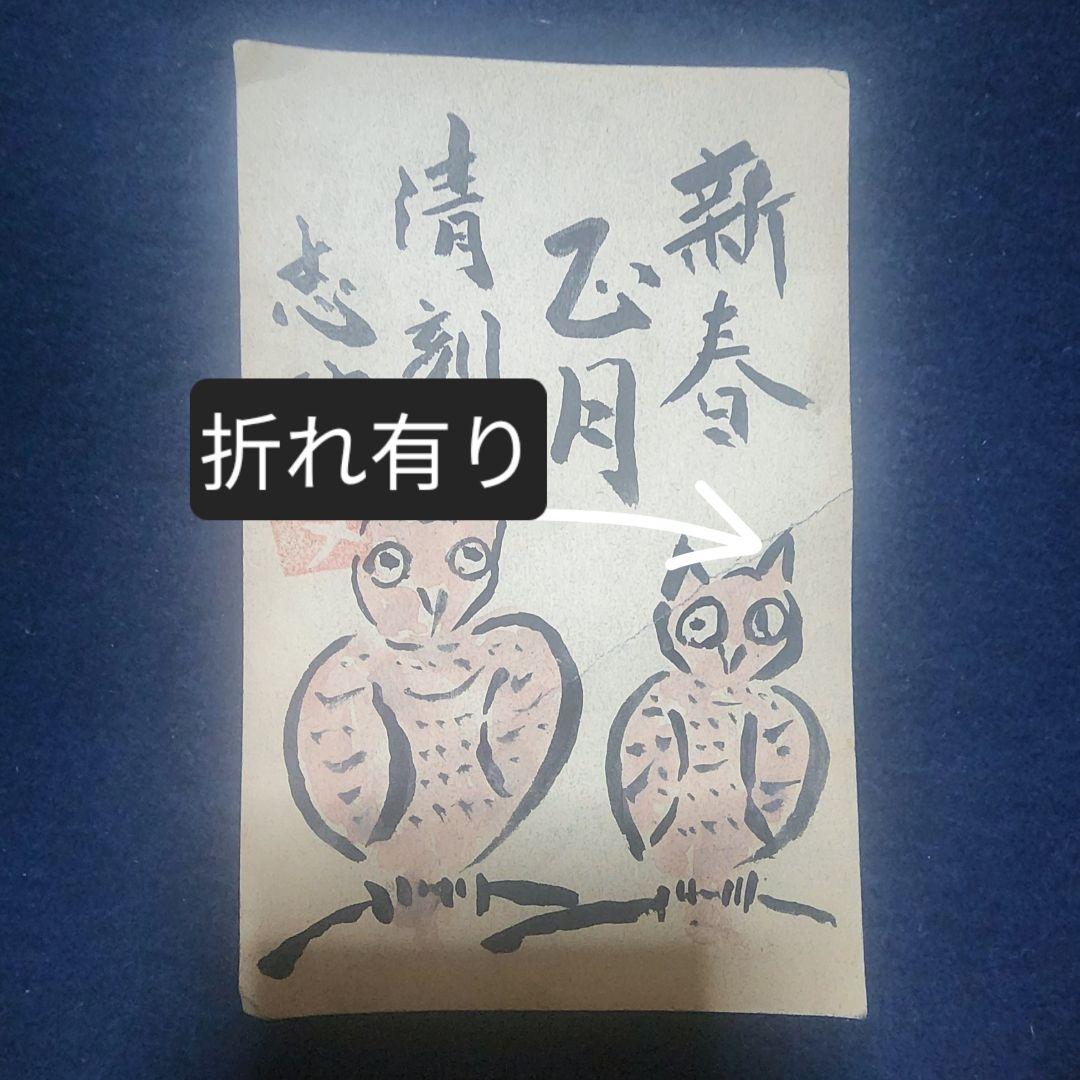 新春
正月
清刻
志
折れ有り